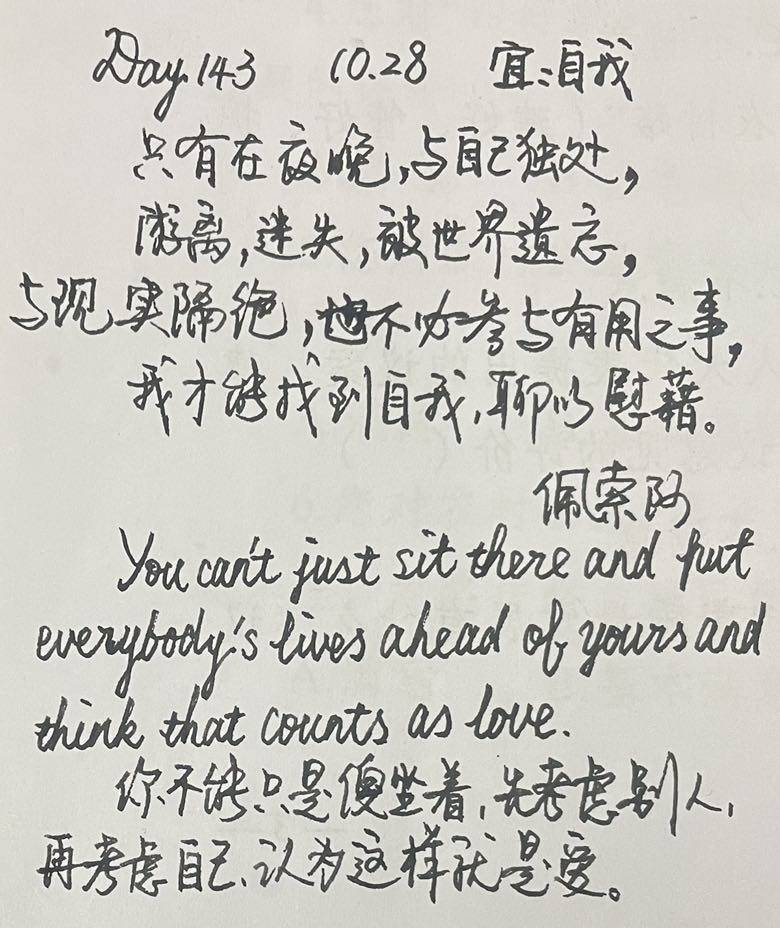 Day.143 10.28 宜:自我
只有在夜晚,与自己独处,
游离,迷失,被世界遗忘,
与现实隔绝,也不必参与有用之事,
我才能找到自我,聊以慰藉。
佩索阿
You can't just sit there and put
everybody's lives ahead of yours and
think that counts as love.
你不能只是傻坐着,先考虑别人,
再考虑自己、认为这样就是爱。